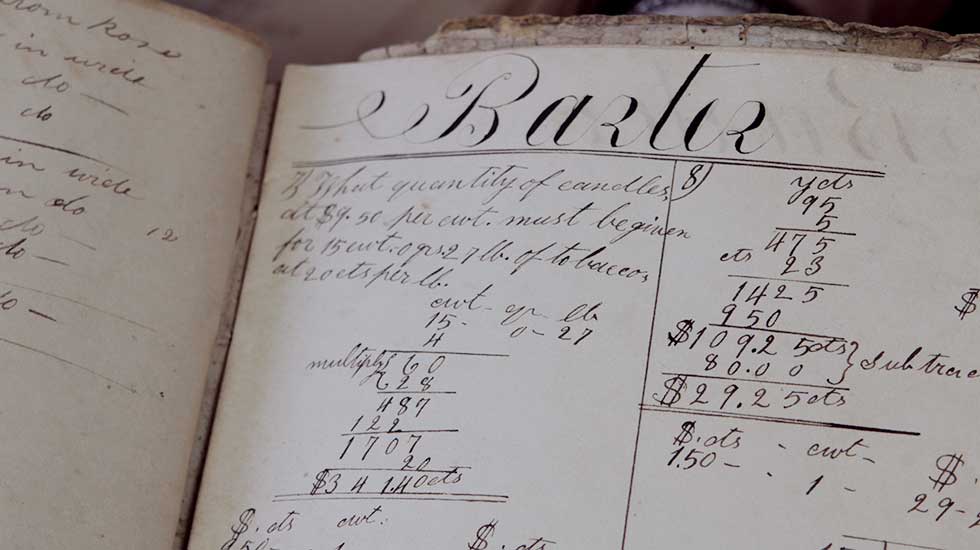 from Rose
in wide
do —
do
in wide
do
do — 12
do —
do —
Barter
7) What quantity of candles,
at $9.50 per cwt. must be given
for 15 cwt. 0 qrs. 27 lb. of tobacco,
at 20 cts per lb.
cwt - qr lb
15 - 0 - 27
4
multiply 60
28
487
122
1707
20
$341.40cts
$. cts cwt.
$. cts
8) yds
95
5
475
cts 23
1425
950
$109.25cts } Subtract
80.00
$29.25cts
$. cts - cwt -
1.50 - - 1 -
$
$.
29-